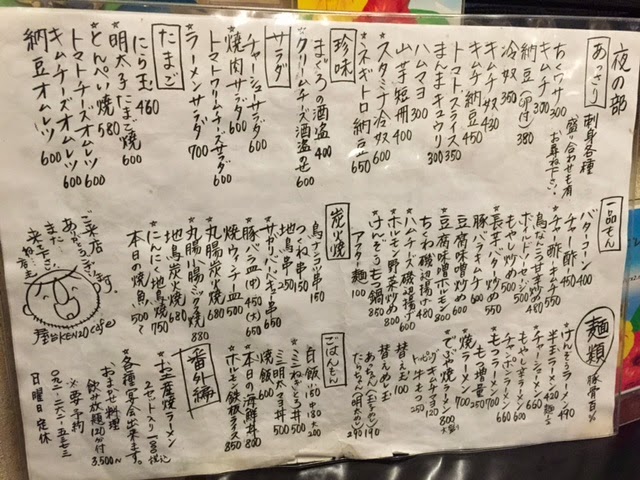 夜の部
あっさり
刺身各種
盛り合わせも有
お尋ね下さい
ちくワサ 300
キムチ 300
納豆(卵付) 380
冷奴 350
キムチ奴 430
キムチ納豆 450
トマトスライス 350
まんまキュウリ 300
ハムマヨ 300
山芋短冊 400
*スタミナ冷奴 600
*ネギトロ納豆 650
珍味
まぐろの酒盗 400
*クリームチーズ酒盗のせ 600
サラダ
チャーシューサラダ 600
*焼肉サラダ 600
トマトワームチーズサラダ 600
*ラーメンサラダ 700
たまご
にら玉 460
*明太子たまご焼 600
*とんぺい焼 580
トマトチーズオムレツ 600
キムチーズオムレツ 600
納豆オムレツ 600
一品もん
バターコーン 400
チャー酢ー 450
*チャー酢ーキムチ 550
鳥なんこつ甘辛炒め 480
ボイルドソーセージ 500
もやし炒め 500
*長芋バター炒め 550
豚バラキムチ 600
豆腐味噌炒め 600
*豆腐味噌ホルモン 800
ちくわ磯辺揚げ 480
*ハムチーズ磯辺揚げ 600
*ホルモン野菜炒め 800
*けんぞうもつ鍋 850
アフター麺 100
炭火焼
鳥ナンコツ串 150
つくね串 150
地鳥串 250
*サガリペッパー串 650
*豚バラ皿 (中)450 (大)650
焼ウィンナー皿 500
丸腸焼 700
*丸腸小腸ミックス焼 880
地鳥炭火焼 680
*にんにく地鳥焼 750
本日の焼魚 500〜
麺類
豚骨百%
*けんぞうラーメン 490
半玉ラーメン 420
*チャーシューメン 660
もやしラーメン 600
*もつラーメン 700
もつ増量 250
*焼ラーメン 700
*でぶ焼ラーメン 800
替え玉 100
替えめし玉
あっちゃん(玉子のせ) 190
たらちゃん(明太のせ) 290
ごはんもん
白飯 小150 中180 大200
*三ねぎとろ丼 500
*三明太マヨ丼 500
焼飯 600
*本日の海鮮丼 800
*ホルモン鉄板ライス 850
番外編
*お土産焼ラーメン
*各種宴会出来ます。
*おまかせ料理
飲み放題120分付
3,500〜
※要予約
日曜日定休
ご来店
ありがとうございます。
また
来て
ねぇ
屋台KENZO Cafe